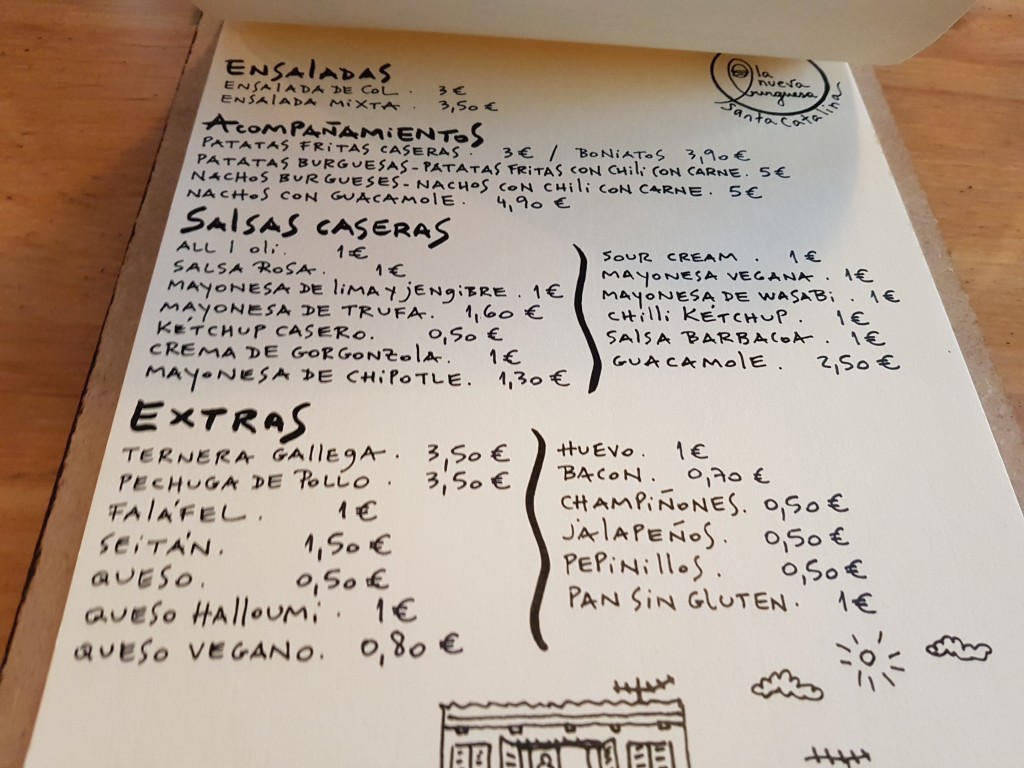 la
nueva
burguesa
Santa Catalina
ENSALADAS
ENSALADA DE COL. 3€
ENSALADA MIXTA. 3,50€
ACOMPAÑAMIENTOS
PATATAS FRITAS CASERAS. 3€ / BONIATOS 3,90€
PATATAS BURGUESAS-PATATAS FRITAS CON CHILI CON CARNE. 5€
NACHOS BURGUESES-NACHOS CON CHILI CON CARNE. 5€
NACHOS CON GUACAMOLE. 4,90€
SALSAS CASERAS
ALL I OLI. 1€
SALSA ROSA. 1€
MAYONESA DE LIMA Y JENGIBRE. 1€
MAYONESA DE TRUFA. 1,60€
KÉTCHUP CASERO. 0,50€
CREMA DE GORGONZOLA. 1€
MAYONESA DE CHIPOTLE. 1,30€
SOUR CREAM. 1€
MAYONESA VEGANA. 1€
MAYONESA DE WASABI. 1€
CHILLI KÉTCHUP. 1€
SALSA BARBACOA. 1€
GUACAMOLE. 2,50€
EXTRAS
TERNERA GALLEGA. 3,50€
PECHUGA DE POLLO. 3,50€
FALÁFEL. 1€
SEITÁN. 1,50€
QUESO. 0,50€
QUESO HALLOUMI. 1€
QUESO VEGANO. 0,80€
HUEVO. 1€
BACON. 0,70€
CHAMPIÑONES. 0,50€
JALAPEÑOS. 0,50€
PEPINILLOS. 0,50€
PAN SIN GLUTEN. 1€